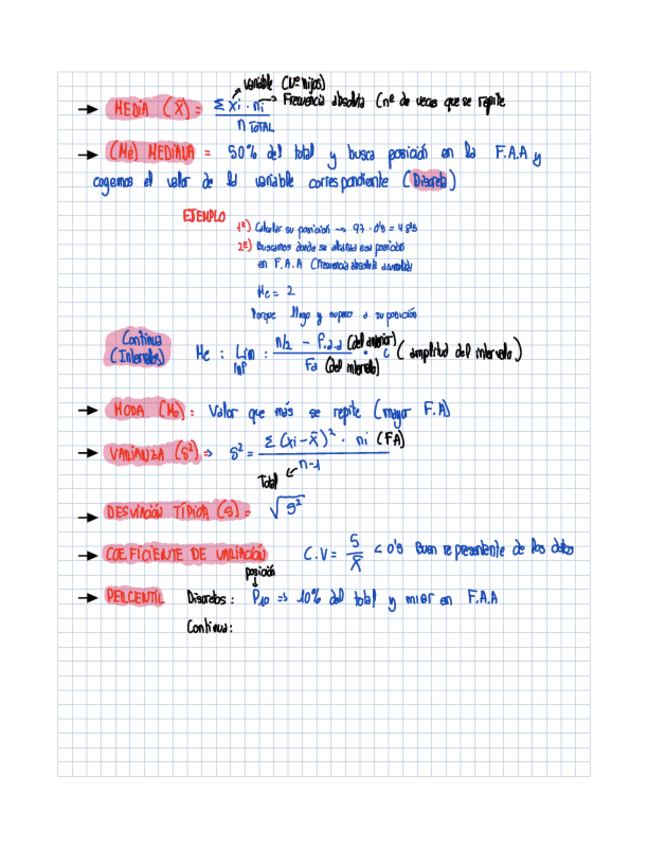 variable (Nº hijos)
→ MEDIA (X̄) = Σ xi · ni → Frecuencia absoluta (nº de veces que se repite
n TOTAL
→ (Me) MEDIANA = 50% del total y busca posición en la F.A.A y
cogemos el valor de la variable correspondiente (Discreta)
EJEMPLO
1º) Calcular su posición → 97 · 0'5 = 48'5
2º) Buscamos donde se alcanza esa posición
en F.A.A (Frecuencia absoluta acumulada)
Me = 2
Porque llega y supera a su posición
Continua
(Intervalos)
Me : Lim inf : n/2 - F.a.a (del anterior) / Fa (del intervalo) · c (amplitud del intervalo)
→ MODA (Mo) : Valor que más se repite (mayor F.A)
→ VARIANZA (S²) ⇒ S² = Σ (xi - x̄)² · ni (FA)
n-1
Total
→ DESVIACIÓN TÍPICA (S) = √S²
→ COEFICIENTE DE VARIACIÓN C.V = S / X̄ < 0'5 Buen representante de los datos
posición
→ PERCENTIL Discretos : P₁₀ ⇒ 10% del total y mirar en F.A.A
Continua :